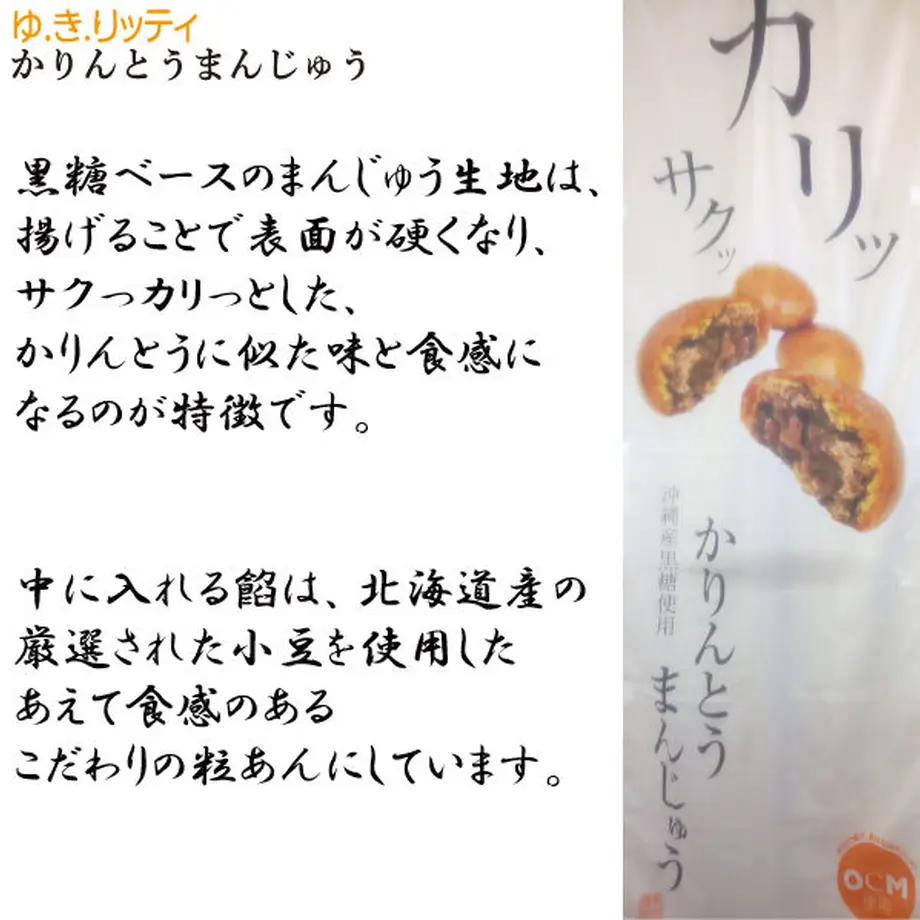 ゆ.き.リッティ
かりんとうまんじゅう
黒糖ベースのまんじゅう生地は、
揚げることで表面が硬くなり、
サクっカリっとした、
かりんとうに似た味と食感に
なるのが特徴です。
中に入れる餡は、北海道産の
厳選された小豆を使用した
あえて食感のある
こだわりの粒あんにしています。
カリッ
サクッ
かりんとう
まんじゅう
沖縄産黒糖使用
OCM